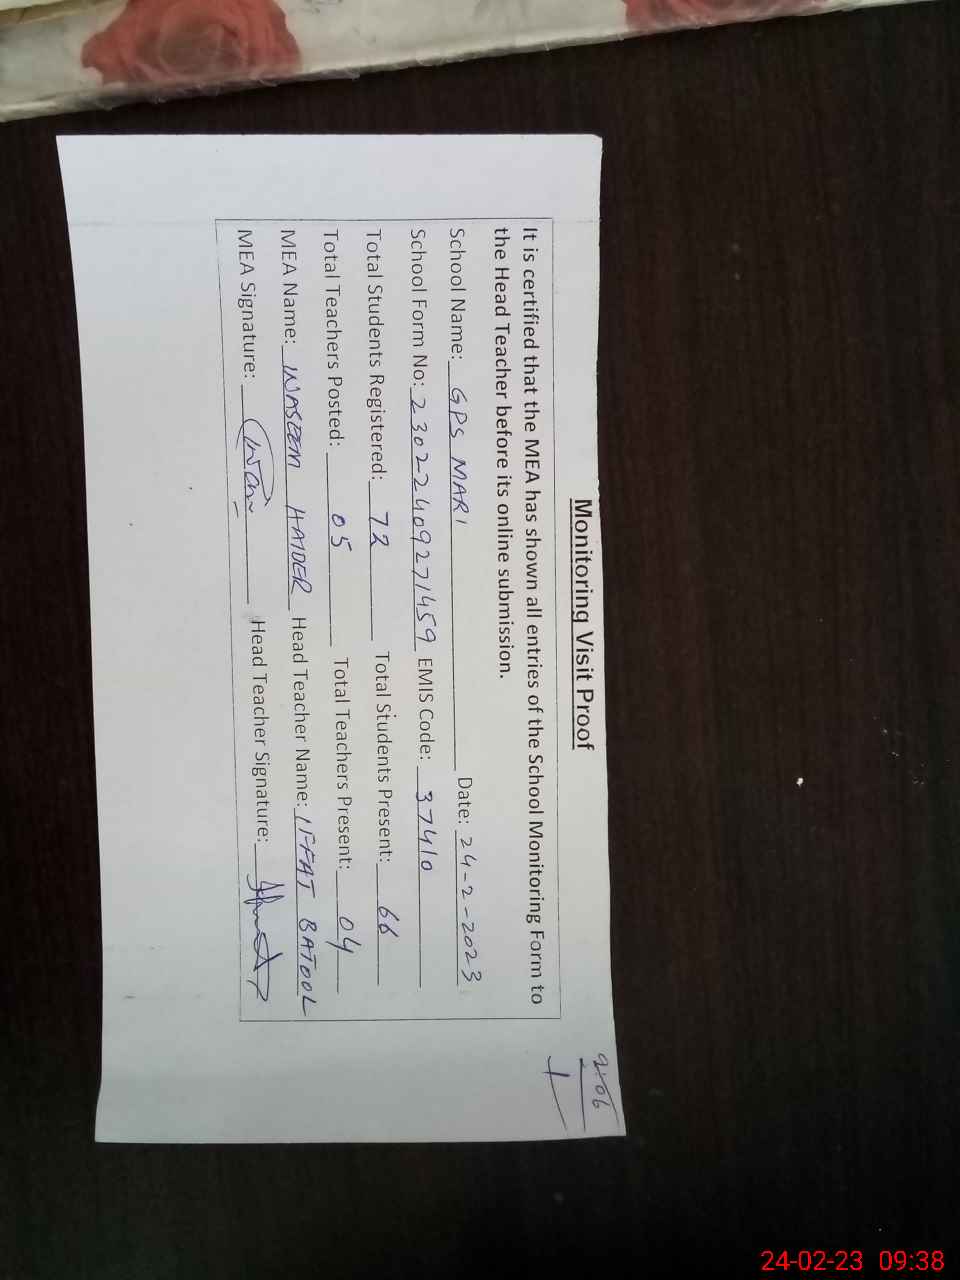 9:06
1
Monitoring Visit Proof
It is certified that the MEA has shown all entries of the School Monitoring Form to
the Head Teacher before its online submission.
School Name: GPS MARI Date: 24-2-2023
School Form No: 23022409271459 EMIS Code: 37410
Total Students Registered: 72 Total Students Present: 66
Total Teachers Posted: 05 Total Teachers Present: 04
MEA Name: WASEEM HAIDER Head Teacher Name: IFFAT BATOOL
MEA Signature: Head Teacher Signature:
24-02-23 09:38